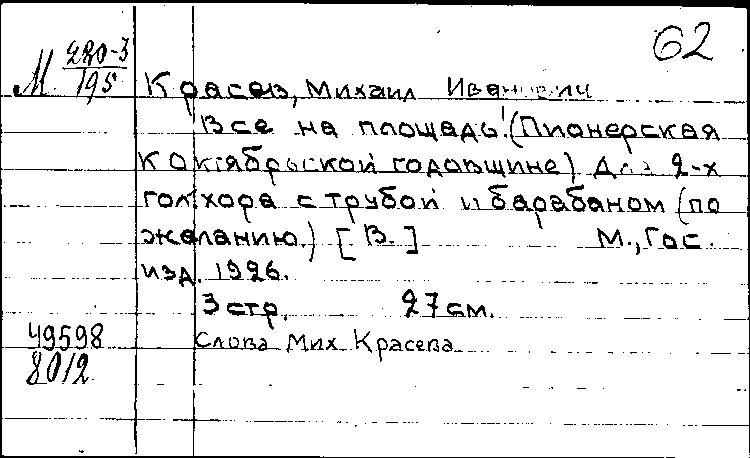 62
М 280-3
195
Красев, Михаил Иванович
Все на площадь! (Пионерская
к октябрьской годовщине) Для 2-х
гол. хора с трубой и барабаном (по
желанию.) [В.] М., Гос.
изд. 1926.
3 стр. 27 см.
49598
8012
Слова Мих Красева